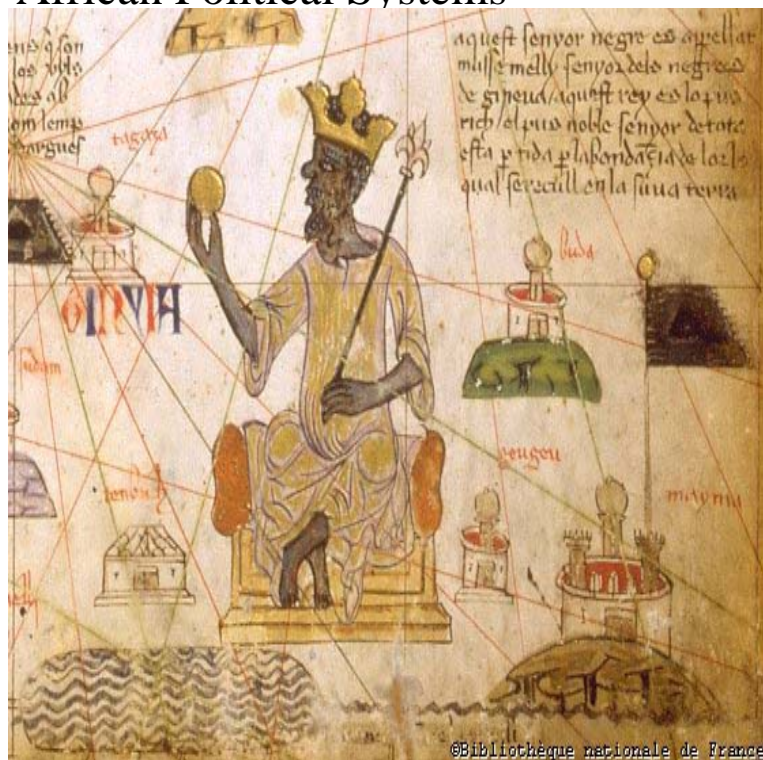 African Political Systems
los
tagaza
aquest senyor negre es appellat
musse melly senyor dels negres
de gineua aquest rey es lo pus
rich el pus noble senyor de tota
esta ptida p labondançia de lor lo
qual se recull en la suua terra
GINVIA
buda
sudam
tenbuch
geugeu
mayma
©Bibliothèque nationale de France